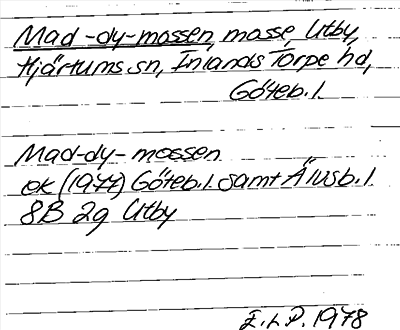 Mad-dy-mossen, mosse, Utby,
Hjärtums sn, Inlands Torpe hd,
Göteb. l.
Mad-dy-mossen
ek (1977) Göteb. l. samt Älvsb. l
8B 2g Utby
E.L.P. 1978